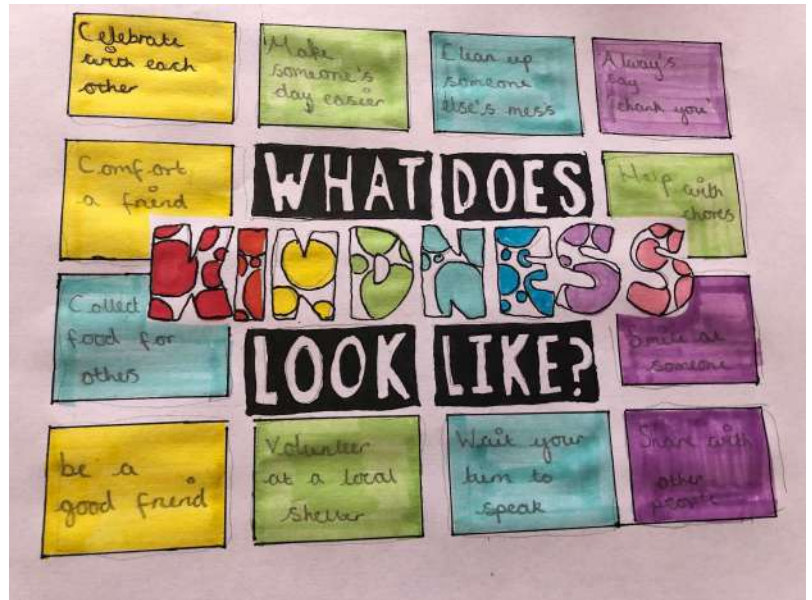 Celebrate
with each
other
Make
someone's
day easier
Clean up
someone
else's mess
Alway's
say
"thank you"
Comfort
a friend
WHAT DOES
Help with
chores
KINDNESS
Collect
food for
others
LOOK LIKE?
Smile at
someone
be a
good friend
Volunteer
at a local
shelter
Wait your
turn to
speak
Share with
other
people